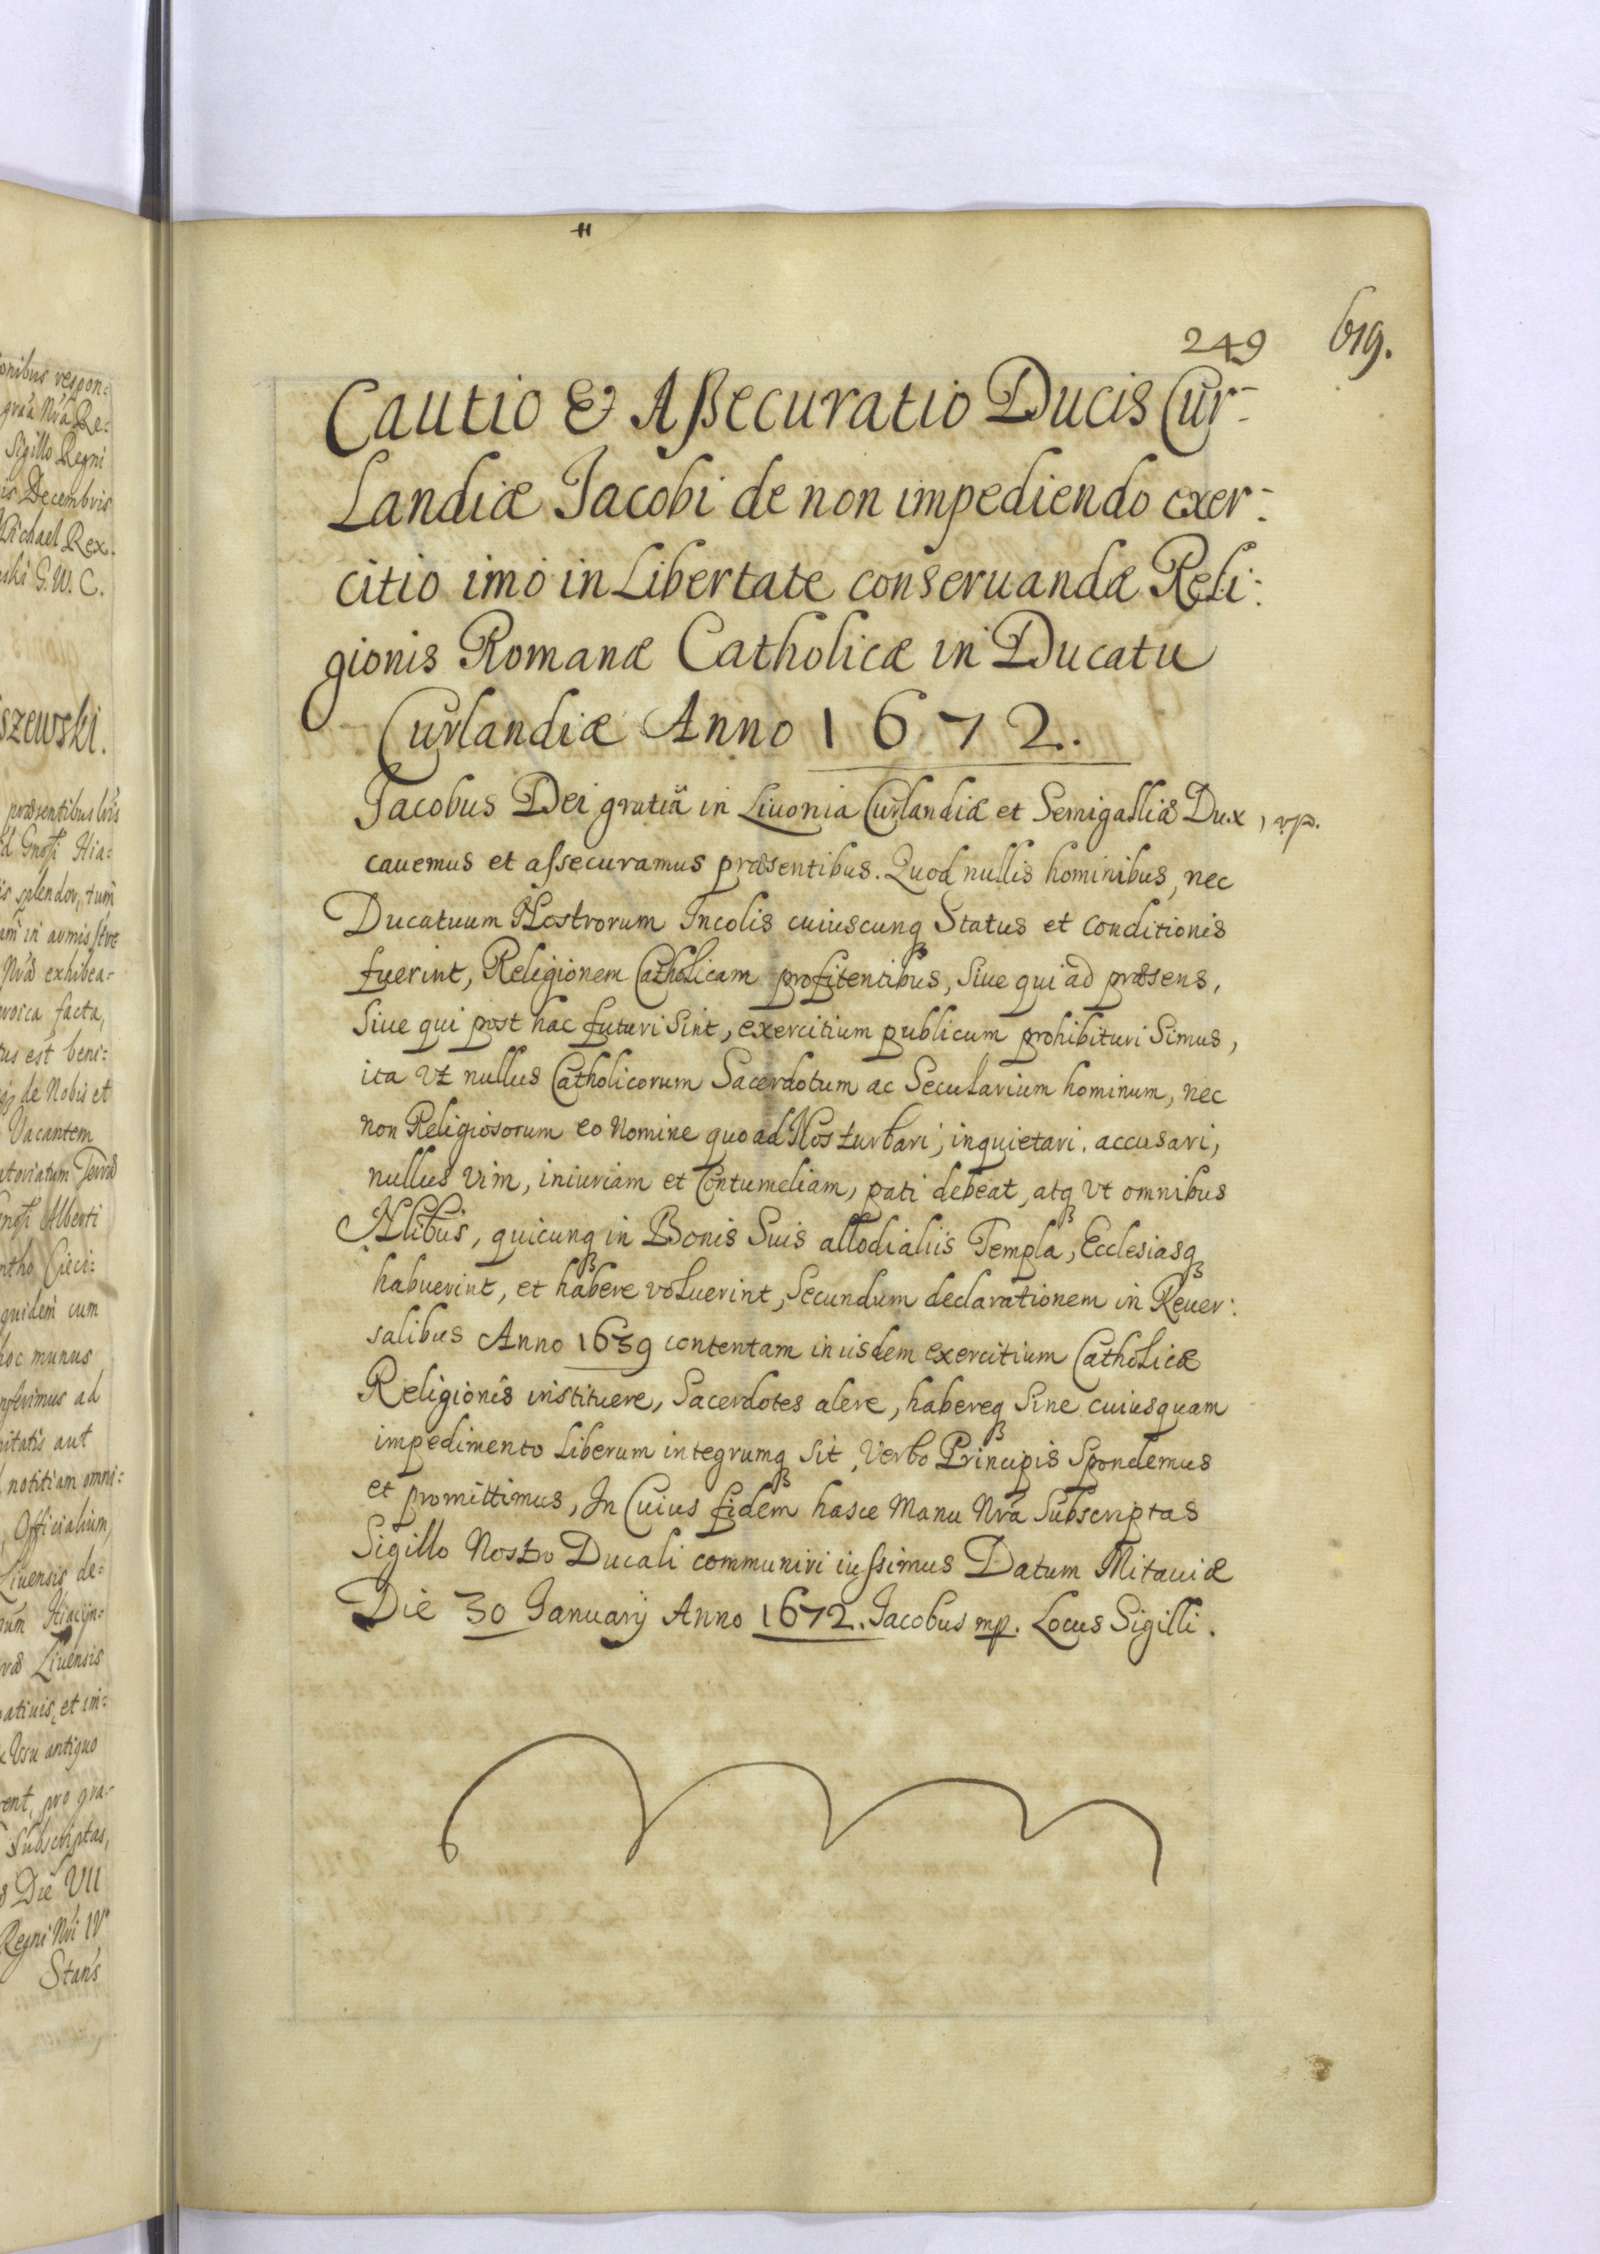 onibus respon:
grãa Nrã Re:
Sigillo Regni
is Decembris
Michael Rex.
G. W. C.
szewski.
præsentibus
Hia:
splendor, tum
in armis
exhibea-
facta,
est beni:
de Nobis et
Vacantem
Terræ
Alberti
Cieci:
quidem cum
hoc munus
ad
aut
notitiam omni:
Officialium,
Liuensis de=
Hiacyn-
Liuensis
et in:
Vsu antiquo
pro gra-
Subscriptas,
Die VII
Regni Nri IV
Stans
249 619.
Cautio & Aßecuratio Ducis Cur-
Landiæ Jacobi de non impediendo exer:
citio imo in Libertate conseruandæ Reli:
gionis Romanæ Catholicæ in Ducatu
Curlandiæ Anno 1672.
Jacobus Dei gratiâ in Liuonia Curlandiæ et Semigalliæ Dux,
cauemus et assecuramus præsentibus. Quod nullis hominibus, nec
Ducatuum Nostrorum Incolis cuiuscunqꝫ Status et conditionis
fuerint, Religionem Catholicam profitentibus, Siue qui ad præsens,
Siue qui post hac futuri Sint, exercitium publicum prohibituri Simus,
ita Vt nullus Catholicorum Sacerdotum ac Secularium hominum, nec
non Religiosorum eo Nomine quo ad Nos turbari, inquietari. accusari,
nullus Vim, iniuriam et Contumeliam, pati debeat, atqꝫ Vt omnibus
Nlibus, quicunqꝫ in Bonis Suis allodialiis Templa, Ecclesiasqꝫ
habuerint, et habere voluerint, Secundum declarationem in Reuer:
salibus Anno 1639 contentam in iisdem exercitium Catholicæ
Religionis instituere, Sacerdotes alere, habereqꝫ Sine cuiusquam
impedimento Liberum integrumqꝫ Sit, Verbo Principis Spondemus
et promittimus, In Cuius fidem hasce Manu Nrã Subscriptas
Sigillo Nostro Ducali communiri iussimus Datum Mitauiæ
Die 30 Januarij Anno 1672. Jacobus mp. Locus Sigilli.